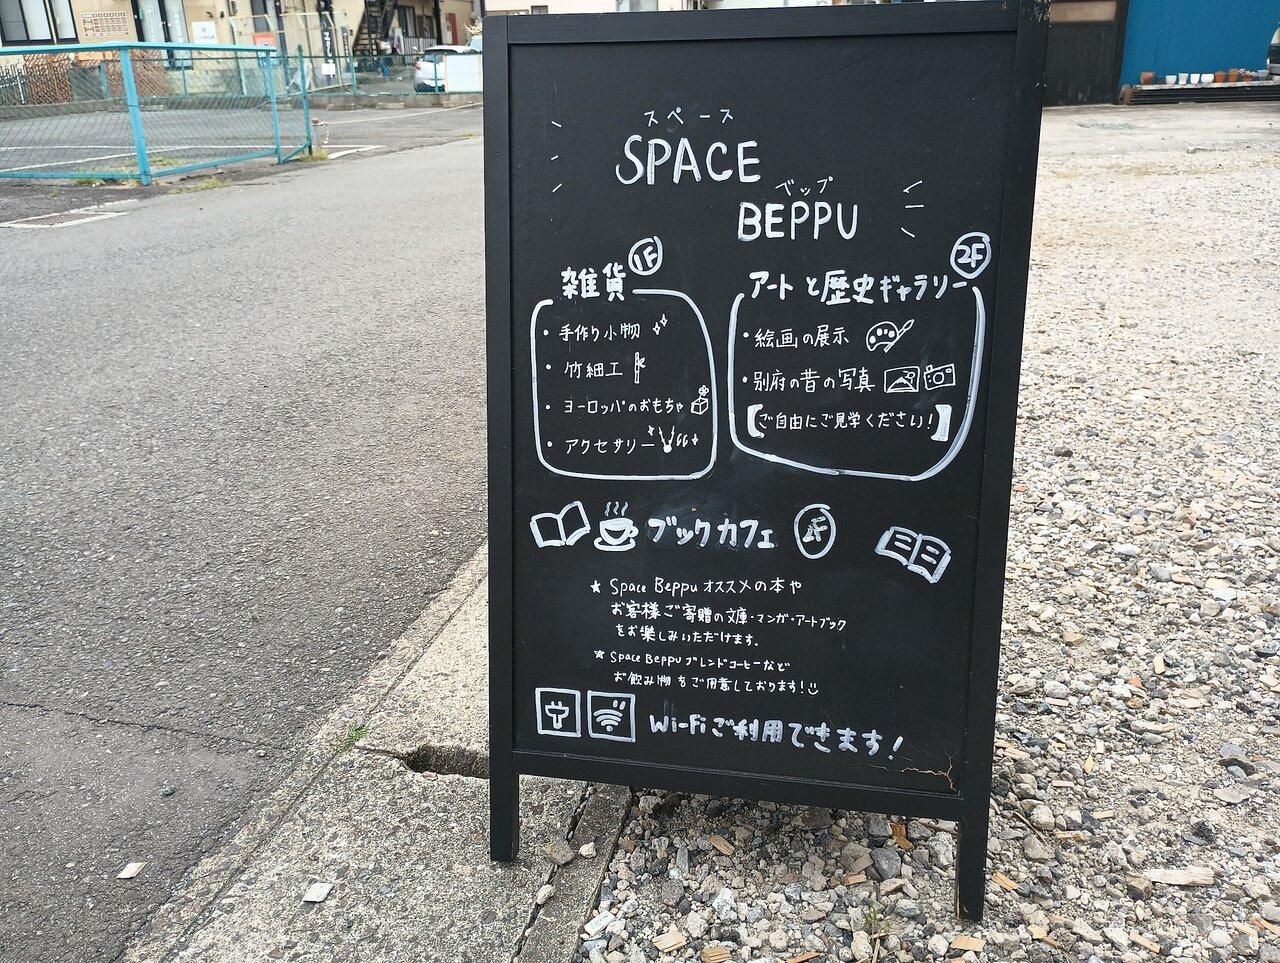 スペース
SPACE
ベップ
BEPPU
1F
雑貨
・手作り小物
・竹細工
・ヨーロッパのおもちゃ
・アクセサリー
2F
アートと歴史ギャラリー
・絵画の展示
・別府の昔の写真
【ご自由にご見学ください!】
ブックカフェ
★ Space Beppu オススメの本や
お客様ご寄贈の文庫・マンガ・アートブック
をお楽しみいただけます。
★ Space Beppu ブレンドコーヒーなど
お飲み物をご用意しております!
Wi-Fiご利用できます!